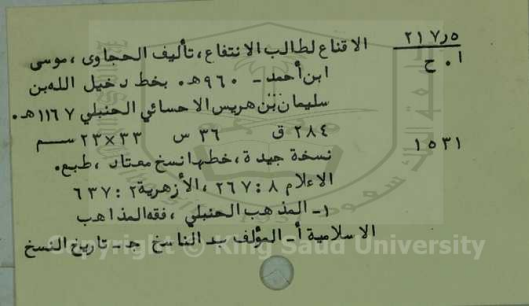 ٢١٧٫٥
ا . ح
الاقناع لطالب الانتفاع ، تأليف الحجاوى ، موسى
ابن أحمد - ٩٦٠ هـ . بخط دخيل الله بن
سليمان بن هريس الاحسائي الحنبلي ١١٦٧ هـ .
٢٨٤ ق ٣٦ س ٣٣×٢٣ سم
١٥٣١
نسخة جيدة ، خطها نسخ معتاد ، طبع .
الاعلام ٨ : ٢٦٧ ، الأزهرية ٢ : ٦٣٧
١- المذهب الحنبلي ، فقه المذاهب
الاسلامية أ - المؤلف ب - الناسخ ج - تاريخ النسخ
Copyright © King Saud University